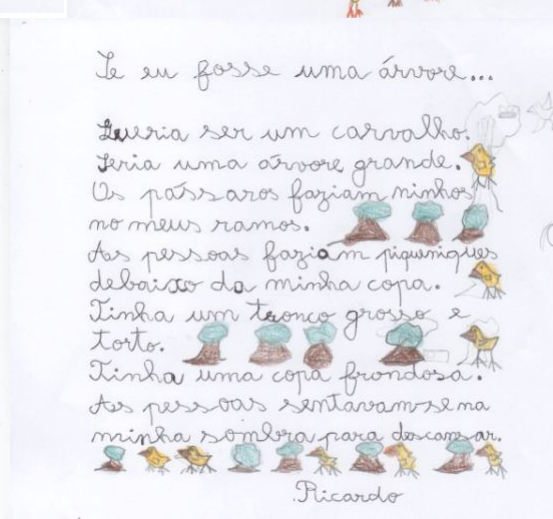 Se eu fosse uma árvore...
Queria ser um carvalho.
Seria uma árvore grande.
Os pássaros faziam ninhos
no meus ramos.
As pessoas faziam piqueniques
debaixo da minha copa.
Tinha um tronco grosso e
torto.
Tinha uma copa frondosa.
As pessoas sentavam-se na
minha sombra para descansar.
Ricardo